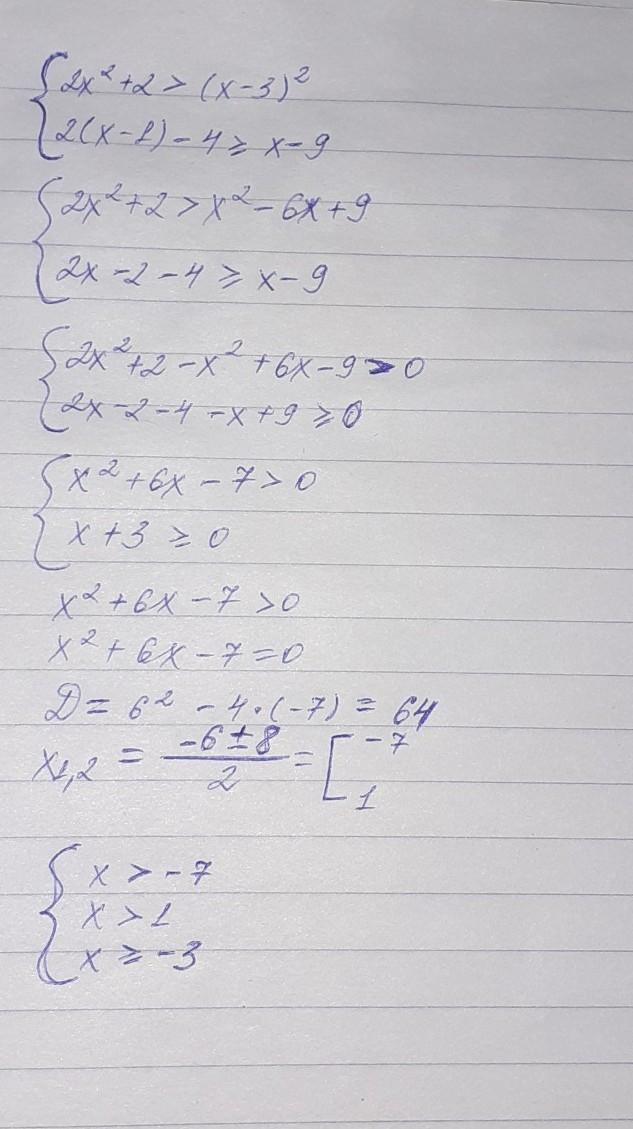 { 2x² + 2 > (x - 3)²
2(x - 1) - 4 ≥ x - 9
{ 2x² + 2 > x² - 6x + 9
2x - 2 - 4 ≥ x - 9
{ 2x² + 2 - x² + 6x - 9 > 0
2x - 2 - 4 - x + 9 ≥ 0
{ x² + 6x - 7 > 0
x + 3 ≥ 0
x² + 6x - 7 > 0
x² + 6x - 7 = 0
Д = 6² - 4·(-7) = 64
x₁,₂ = (-6 ± 8)/2 = [ -7
1
{ x > -7
x > 1
x ≥ -3